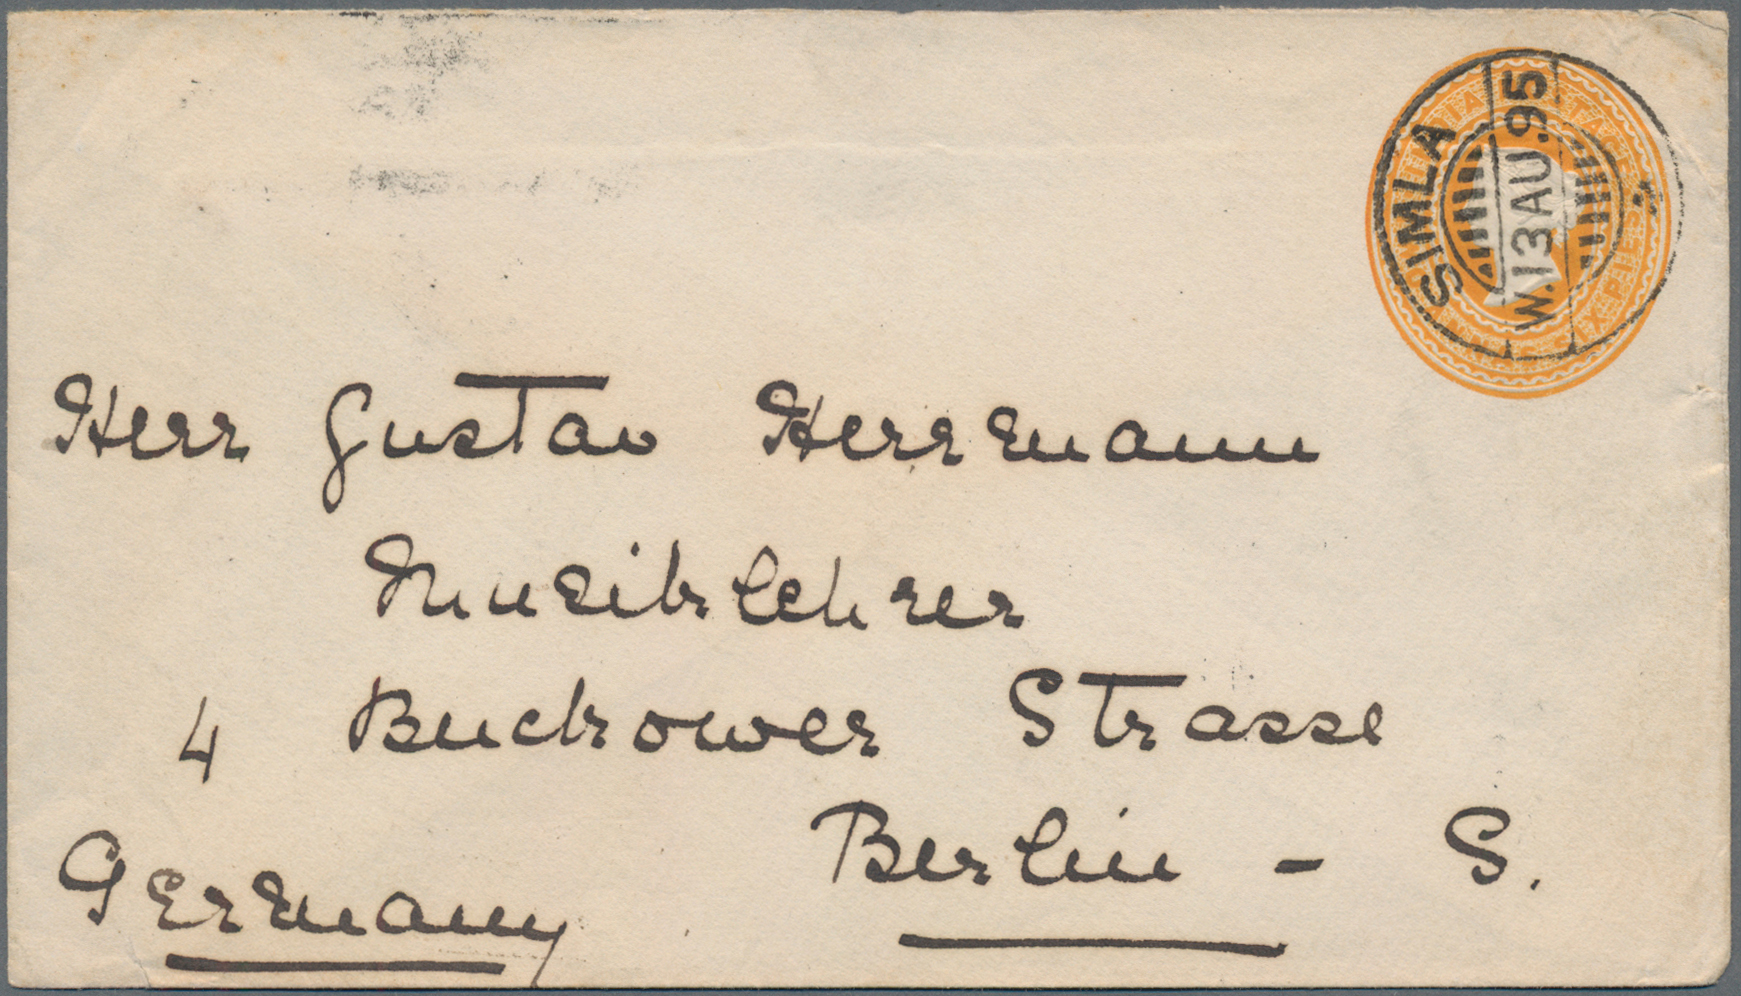 SIMLA
W.13AU.95
Herr Gustav Herrmann
Musiklehrer
4 Buckower Strasse
Berlin - S.
Germany